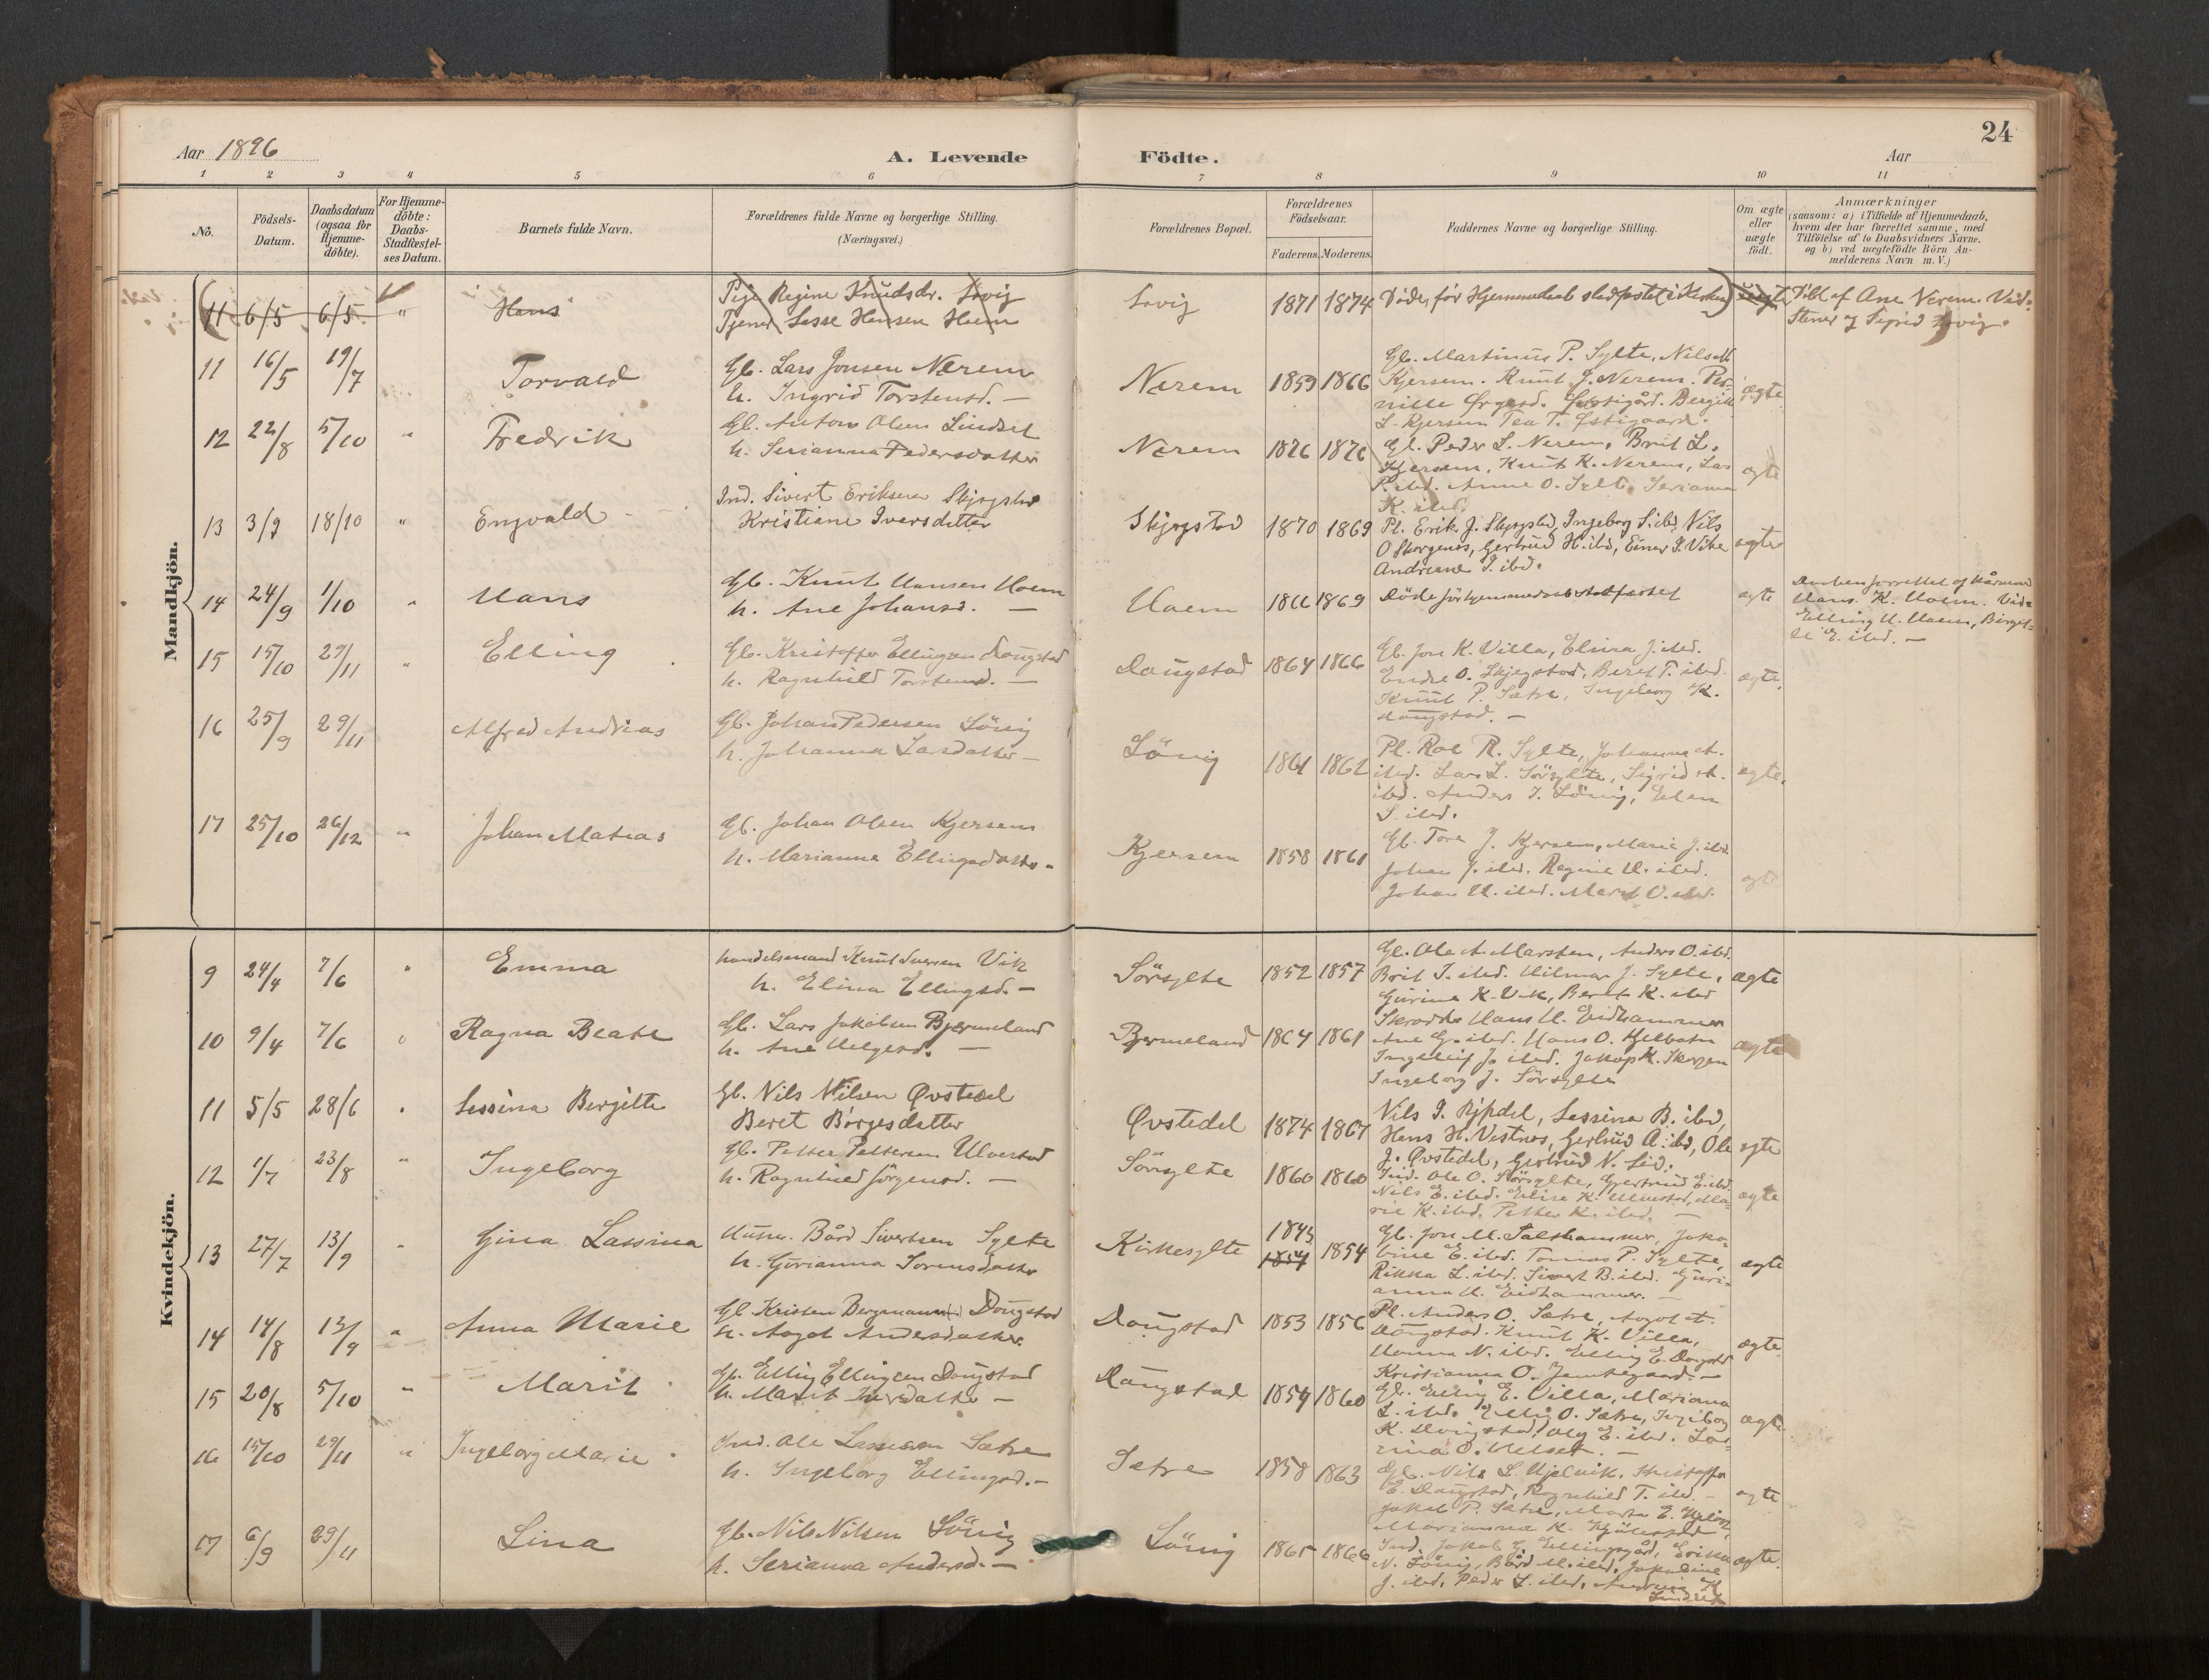 24
Aar 1896
A. Levende Födte.
Aar
1 2 3 4 5 6 7 8 9 10 11
No.
Födsels-Datum.
Daabsdatum (ogsaa for Hjemme-döbte).
For Hjemme-döbte: Daabs-Stadfæstel-ses Datum.
Barnets fulde Navn.
Forældrenes fulde Navne og borgerlige Stilling.
(Næringsvei.)
Forældrenes Bopæl.
Forældrenes Födselsaar.
Faderens. Moderens.
Faddernes Navne og borgerlige Stilling.
Om ægte eller uægte födt.
Anmærkninger
(saasom: a) i Tilfælde af Hjemmedaab,
hvem der har forrettet samme, med
Tilföielse af to Daabsvidners Navne,
og b) ved uægtefödte Börn An-
melderens Navn m. V.)
Mandkjön.
11 6/5 6/5 " Hans
Pige Regine Knudsdr. Sovig
Tjener Lasse Hansen Hoem
Sovig 1871 1874 Döde för Hjemmedaab stadfæstet uægte
Döbt af Ane Nerem. Vid.
11 16/5 19/7 Torvald
Gb. Lars Jonsen Nerem
h. Ingrid Torstensd. —
Nerem 1859 1866
Gb. Martinus P. Sylte, Nils M
Kjersem. Knut J. Nerem. Per-
nille
L. Kjersem Tea T. Østigaard.
ægte
12 22/8 5/10 " Fredrik
Gb. Anton Olsen Lindset
h. Serianna Pedersdatter
Nerem 1876
Gb. Peder L. Nerem, Brit L.
Kjersem, Knut K. Nerem, Lars
P. ibd. Anne O. Sylte Serianna
K. ibd.
ægte
13 3/9 18/10 " Engvald
Ind. Sivert Eriksen Skjegstad
Kristiane Iversdatter
Skjegstad 1870 1869
Pl. Erik J. Skjegstad, Ingeborg S. ibd, Nils
O Skorgenes, Gertrud H. ibd, Einar I. Vike
Andrianne I. ibd.
ægte
14 24/9 1/10 " Hans
Gb. Knut Hansen Hoem
h. Ane Johansd. —
Hoem 1866 1869 Döde för hjemmedaab stadfæstet
ægte
Daaben forrettet af
Hans K. Hoem. Vid.
Elling H. Hoem,
15 15/10 29/11 " Elling
Gb. Kristoffer Ellingsen Dougstad
h. Ragnhild Torstensd. —
Dougstad 1864 1866
Gb. Jon K. Villa, Elina J. ibd.
Endre O. Skjegstad, Beret T. ibd.
Knut P. Sætre, Ingeborg K.
Dougstad. —
ægte.
16 25/9 29/11 Alfred Andreas
Gb. Johan Pedersen Sövig
h. Johanna Larsdatter —
Sövig 1861 1862
Pl. Roe R. Sylte, Johanna A.
ibd. Lars L. Sörsylte, Sigrid A.
ibd. Anders I. Sövig, Elen
S. ibd.
ægte.
17 25/10 26/12 " Johan Matias
Gb. Johan Olsen Kjersem
h. Marianne Ellingsdatter
Kjersem 1858 1861
Gb. Tore J. Kjersem, Marie J. ibd.
Johan J. ibd. Regine H. ibd.
Johan H. ibd. Marit O. ibd.
ægte
Kvindekjön.
9 24/4 7/6 " Emma
Handelsmand Knut Iversen Vik
h. Elina Ellingsd. —
Sörsylte 1852 1857
Gb. Ole A. Marsten, Anders O. ibd.
Brit I. ibd. Hilmar J. Sylte,
Gurine K. Vik, Beret K. ibd
ægte
10 9/4 7/6 " Ragna Beate
Gb. Lars Jakobsen Bjermeland
h. Ane Helgesd. —
Bjermeland 1864 1861
Skrædder Hans H. Eidhammer
Ane G. ibd. Hans O. Hjelbotn
Ingeleif J. ibd. Jakop K. Skorgen
Ingeborg J. Sörsylte
ægte
11 5/5 28/6 " Lessina Bergitte
Gb. Nils Nilsen Øvstedal
Beret Börgesdatter
Øvstedal 1874 1867
Nils I. Lessina B. ibd,
Hans H. Vestnes, Gertrud A. ibd, Ole
J. Øvstedal, Gertrud N. Lid.
ægte
12 1/7 23/8 " Ingeborg
Gb. Petter Pettersen Ulvestad
h. Ragnhild Jörgensd. —
Sörsylte 1860 1860
Ind. Ole O. Sörsylte, Gjertrud E. ibd.
Nils E. ibd. Elise K. Ulvestad, Ma-
rie K. ibd. Petter K. ibd. —
ægte
13 27/7 13/9 " Gina Lassina
Husm. Bård Sivertsen Sylte
h. Gurianna Sorensdatter
Kirkesylte 1843 1854
Gb. Jon M. Salthammer, Jako-
bine E. ibd. Tomas P. Sylte,
Rikka L. ibd. Sivert B. ibd. Guri-
anna H. Eidhammer. —
ægte
14 14/8 13/9 " Anna Marie
Gb. Kristen Bergmann Dougstad
h. Aagot Andersdatter.
Dougstad 1853 1856
Pl. Anders O. Sætre, Aagot A.
Dougstad. Knut K. Villa,
Hanna N. ibd. Elling E. Dougstad
Kristianna O.
ægte.
15 20/8 5/10 " Marit
Gb. Elling Ellingsen Dougstad
h. Marit Iversdatter —
Dougstad 1854 1860
Gb. Elling E. Villa, Marianna
L. ibd. Elling O. Sætre, Ingeborg
K. Dougstad, Oley E. ibd. Lar-
rina O. Helset. —
ægte
16 15/10 29/11 " Ingeborg Marie
Ind. Ole Lassesen Sætre
h. Ingeborg Ellingsd. —
Sætre 1858 1863
Gb. Nils L. Hjelvik, Kristoffer
E. Dougstad, Ragnhild T. ibd —
Jakob P. Sætre, Marta E. Hjelvik,
Marianna K.
ægte
17 6/9 29/11 Lina
Gb. Nils Nilsen Sövig
h. Serianna Andersd. —
Sövig 1865 1866
Ind. Jakob J. Ellingsgård, Erika
N. Sövig, Bård M. ibd. Jakobine
J. ibd. Peder L. ibd. K
Lindset
ægte.